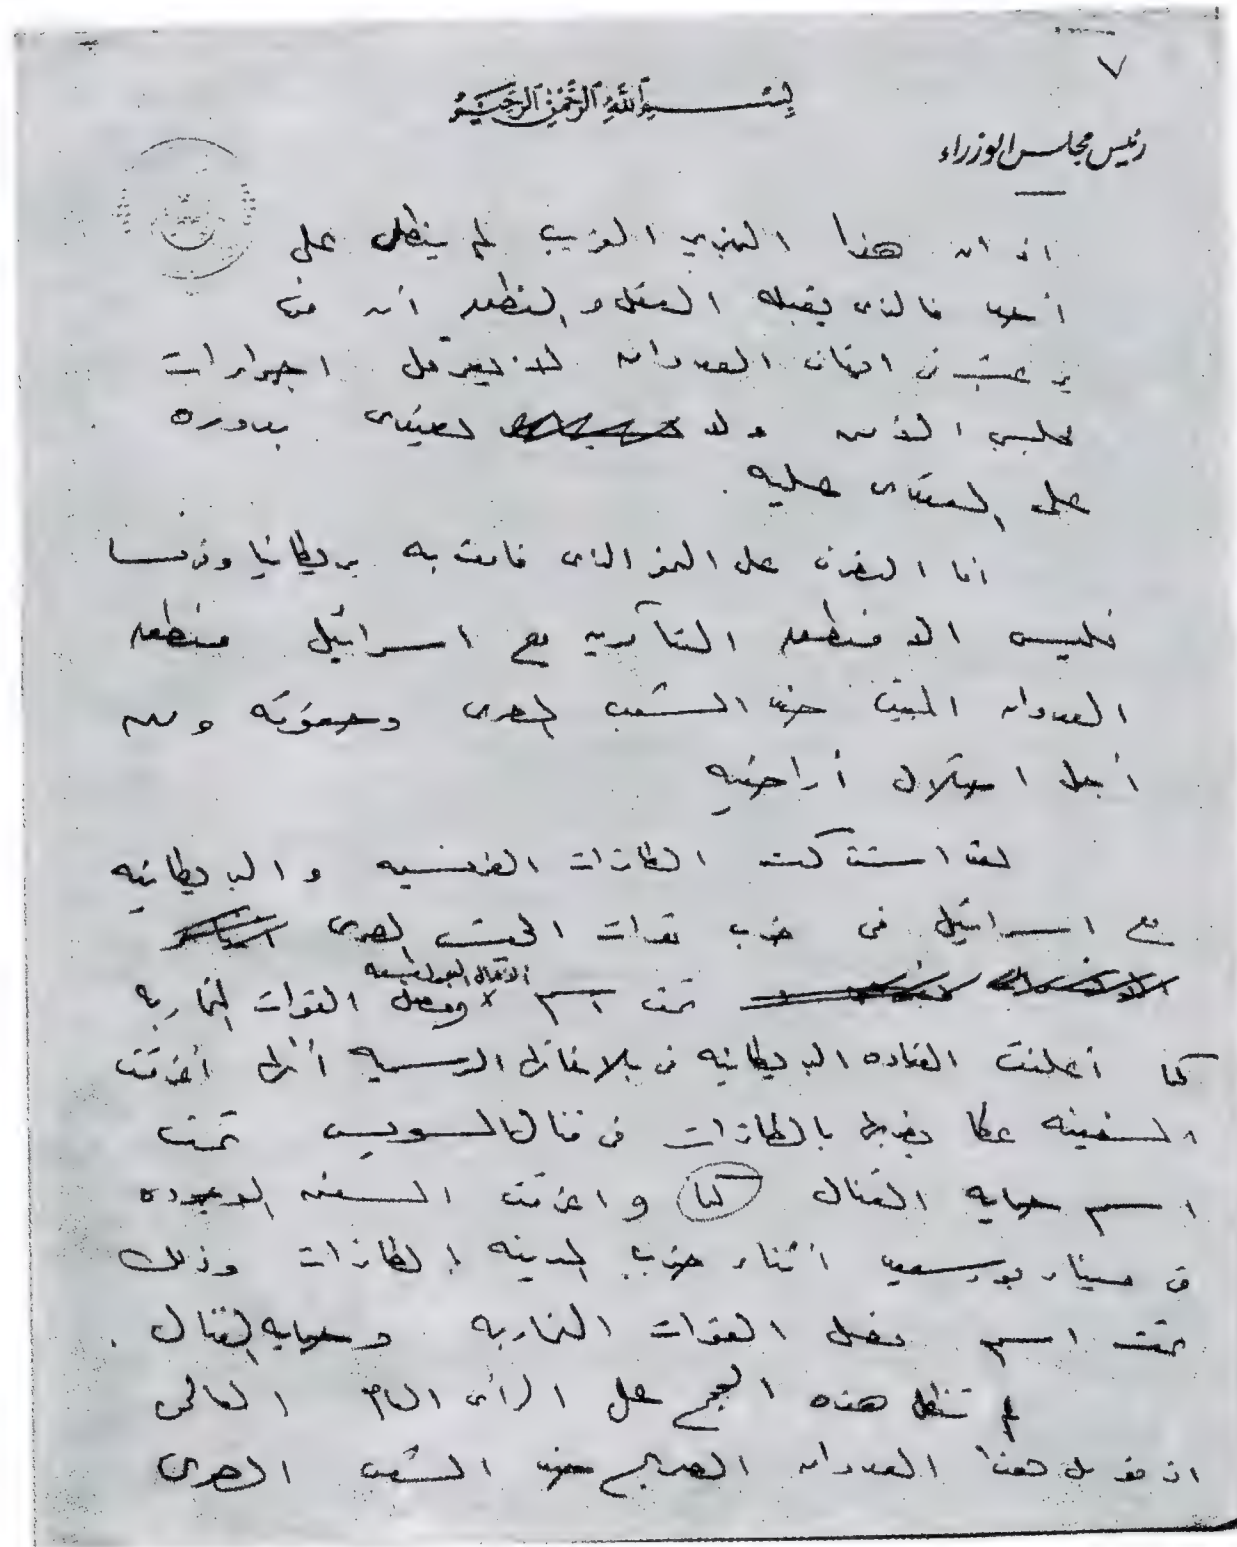 ٧
بسم الله الرحمن الرحيم
رئيس مجلس الوزراء
اذ ان هذا التبرير الغريب لم ينطلى على
أحد فالذى يقبله العقل والمنطق أنه من
يرغب فى ايقاف العدوان لا يعرقل اجراءات
مجلس الأمن ولا يعتدى بدوره
على المعتدى عليه .
أما التصرف على النحو الذى قامت به بريطانيا وفرنسا
فليس الا منطق التآمر مع اسرائيل منطق
العدوان المبيت ضد الشعب المصرى وحقوقه ومن
أجل احتلال أراضيه
لقد اشتركت الطائرات الفرنسيه والبريطانيه
مع اسرائيل فى ضرب قوات الجيش المصرى
تحت اسم وفصل القوات المتحاربه
كما أعلنت القياده البريطانيه فى بلاغاتها الرسميه أنها أغرقت
السفينه عكا بضربها بالطائرات فى قنال السويس تحت
اسم حمايه القنال كما واغرقت السفن الموجوده
فى ميناء بورسعيد أثناء ضرب المدينه بالطائرات وذلك
تحت اسم فصل القوات المتحاربه وحمايه القنال .
لم تنطل هذه الحجج على الرأى العام العالمى
اذ قوبل هذا العدوان الصريح ضد الشعب المصرى